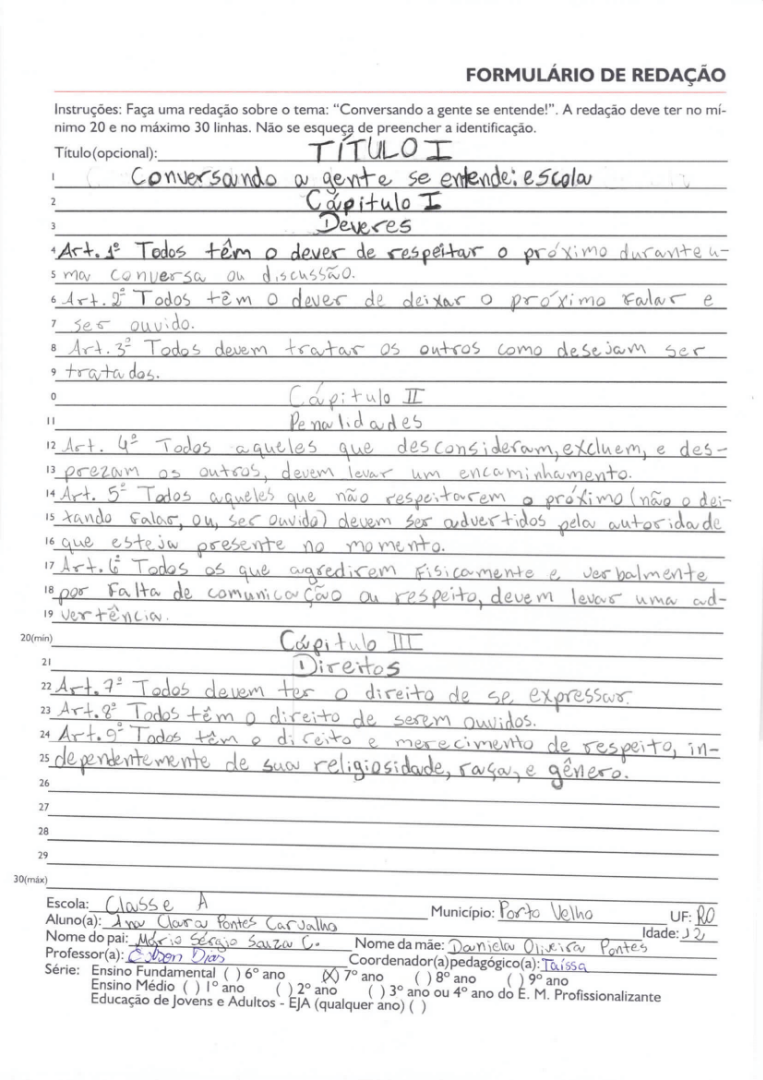 FORMULÁRIO DE REDAÇÃO
Instruções: Faça uma redação sobre o tema: “Conversando a gente se entende!”. A redação deve ter no mí-
nimo 20 e no máximo 30 linhas. Não se esqueça de preencher a identificação.
Título(opcional): TÍTULO I
1 Conversando a gente se entende: escola
2 Cápitulo I
3 Deveres
4 Art. 1º Todos têm o dever de respeitar o próximo durante u-
5 ma conversa ou discussão.
6 Art. 2º Todos têm o dever de deixar o próximo falar e
7 ser ouvido.
8 Art. 3º Todos devem tratar os outros como desejam ser
9 tratados.
0 Cápitulo II
11 Penalidades
12 Art. 4º Todos aqueles que desconsideram, excluem, e des-
13 prezam os outros, devem levar um encaminhamento.
14 Art. 5º Todos aqueles que não respeitarem o próximo (não o dei-
15 xando falar, ou, ser ouvido) devem ser advertidos pela autoridade
16 que esteja presente no momento.
17 Art. 6º Todos os que agredirem fisicamente e verbalmente
18 por falta de comunicação ou respeito, devem levar uma ad-
19 vertência.
20(mín) Cápitulo III
21 Direitos
22 Art. 7º Todos devem ter o direito de se expressar.
23 Art. 8º Todos têm o direito de serem ouvidos.
24 Art. 9º Todos têm o direito e merecimento de respeito, in-
25 dependentemente de sua religiosidade, raça, e gênero.
26
27
28
29
30(máx)
Escola: Classe A Município: Porto Velho UF: RO
Aluno(a): Ana Clara Pontes Carvalho Idade: 12
Nome do pai: Mário Sérgio Souza C. Nome da mãe: Daniela Oliveira Pontes
Professor(a): Edson Dias Coordenador(a)pedagógico(a): Taíssa
Série: Ensino Fundamental ( ) 6º ano (X) 7º ano ( ) 8º ano ( ) 9º ano
Ensino Médio ( ) 1º ano ( ) 2º ano ( ) 3º ano ou 4º ano do E. M. Profissionalizante
Educação de Jovens e Adultos - EJA (qualquer ano) ( )